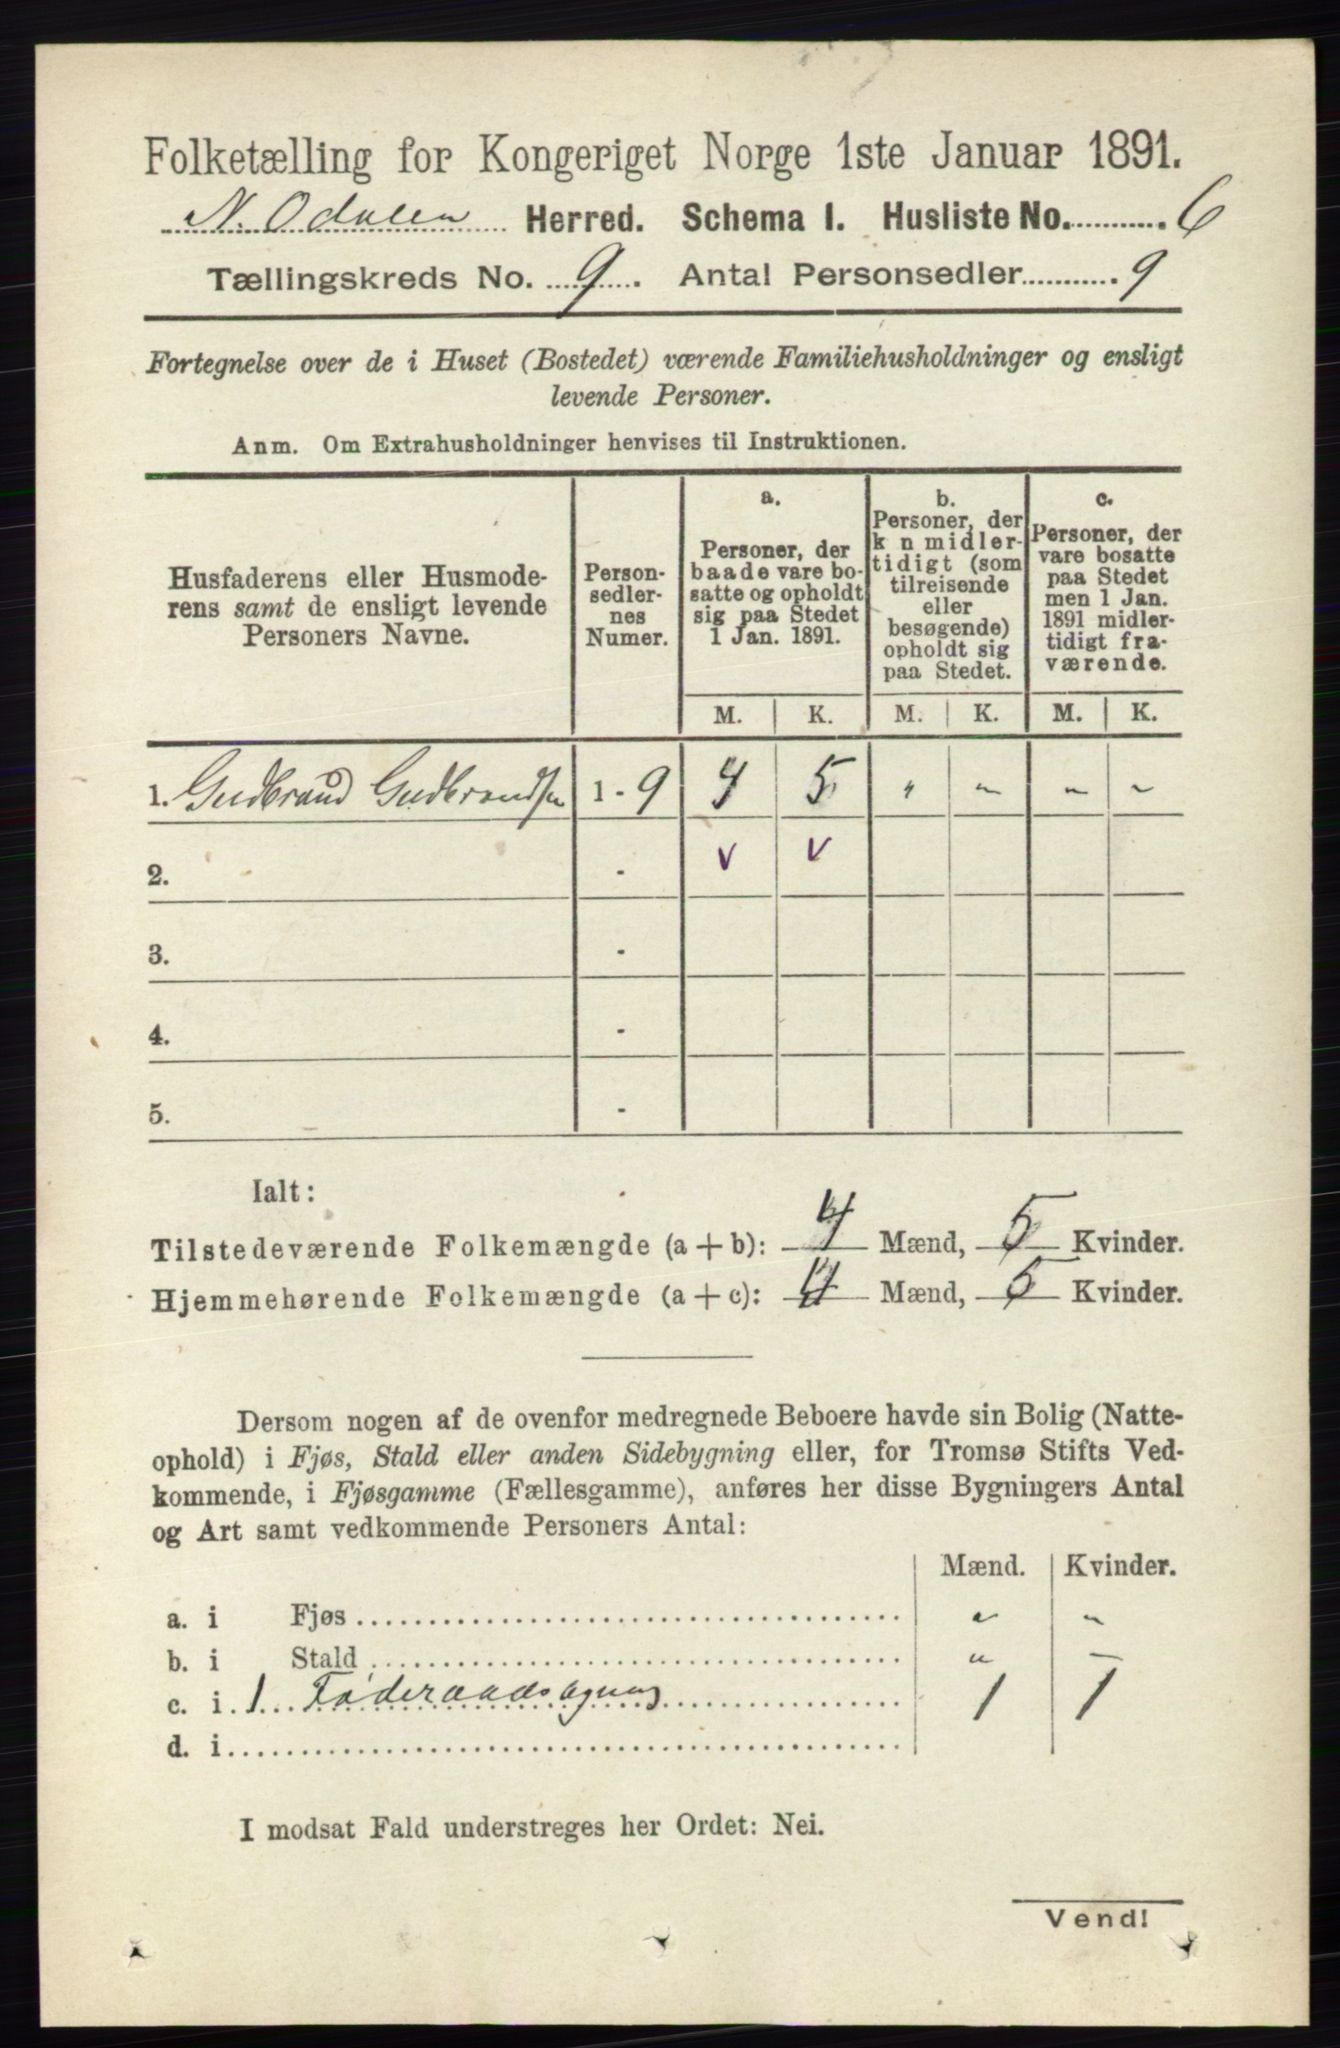 Folketælling for Kongeriget Norge 1ste Januar 1891.
N. Odalen Herred. Schema I. Husliste No. 6
Tællingskreds No. 9. Antal Personsedler 9
Fortegnelse over de i Huset (Bostedet) værende Familiehusholdninger og ensligt
levende Personer.
Anm. Om Extrahusholdninger henvises til Instruktionen.
Husfaderens eller Husmode-
rens samt de ensligt levende
Personers Navne.
Person-
sedler-
nes
Numer.
a.
Personer, der
baade vare bo-
satte og opholdt
sig paa Stedet
1 Jan. 1891.
b.
Personer, der
k n midler-
tidigt (som
tilreisende
eller
besøgende)
opholdt sig
paa Stedet.
c.
Personer, der
vare bosatte
paa Stedet
men 1 Jan.
1891 midler-
tidigt fra-
værende.
M. K. M. K. M. K.
1. Gudbrand Gudbrandsen 1 - 9 4 5 " " " "
2. - v v
3. -
4. -
5. -
Ialt:
Tilstedeværende Folkemængde (a + b): 4 Mænd, 5 Kvinder.
Hjemmehørende Folkemængde (a + c): 4 Mænd, 5 Kvinder.
Dersom nogen af de ovenfor medregnede Beboere havde sin Bolig (Natte-
ophold) i Fjøs, Stald eller anden Sidebygning eller, for Tromsø Stifts Ved-
kommende, i Fjøsgamme (Fællesgamme), anføres her disse Bygningers Antal
og Art samt vedkommende Personers Antal:
Mænd. Kvinder.
a. i Fjøs " "
b. i Stald " –
c. i 1 Føderaadsbygning 1 1
d. i
I modsat Fald understreges her Ordet: Nei.
Vend!